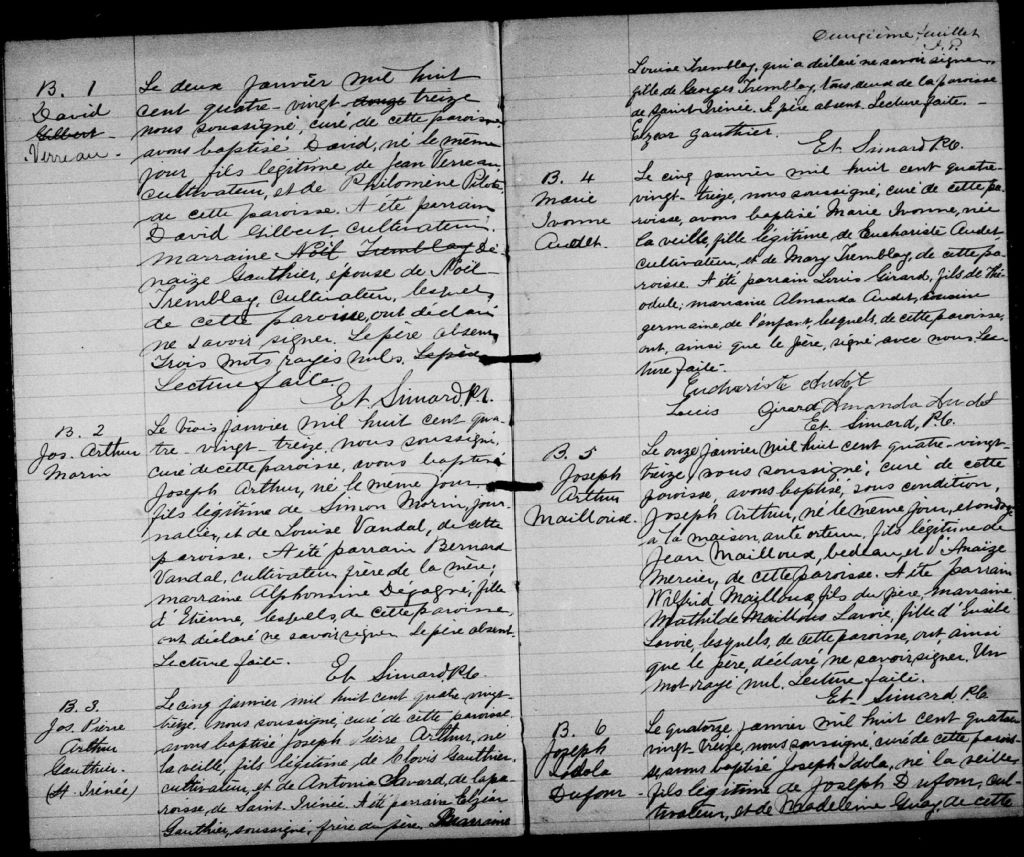 B. 1
David
Gilbert
Verreau.
Le deux janvier mil huit
cent quatre-vingt-douze treize
nous soussigné, curé de cette paroisse
avons baptisé David, né le même
jour, fils légitime de Jean Verreau,
cultivateur, et de Philomène Pilote,
de cette paroisse. A été parrain
David Gilbert, cultivateur;
marraine Noël Tremblay Dé-
naize Gauthier, épouse de Noël
Tremblay, cultivateur, lesquels
de cette paroisse, ont déclaré
ne savoir signer. Le père absent
Trois mots rayés nuls. Le père
Lecture faite.
Et Simard Pt.
B. 2
Jos. Arthur
Morin
Le trois janvier mil huit cent qua-
tre-vingt-treize, nous soussigné,
curé de cette paroisse, avons baptisé
Joseph Arthur, né le même jour,
fils légitime de Simon Morin, jour-
nalier, et de Louise Vandal, de cette
paroisse. A été parrain Bernard
Vandal, cultivateur, frère de la mère;
marraine Alphonsine Dégagné, fille
d'Etienne, lesquels, de cette paroisse,
ont déclaré ne savoir signer. Le père absent.
Lecture faite.
Et Simard Pt
B. 3.
Jos. Pierre
Arthur
Gauthier.
(St. Irénée)
Le cinq janvier mil huit cent quatre vingt-
treize, nous soussigné, curé de cette paroisse
avons baptisé Joseph Pierre Arthur, né
la veille, fils légitime de Clovis Gauthier,
cultivateur, et de Antonia Savard, de la pa-
roisse de Saint Irénée. A été parrain Elzéar
Gauthier, soussigné, frère du père, Marraine
Onzième feuillet
Louise Tremblay, qui a déclaré ne savoir signer,
fille de Georges Tremblay, tous deux de la paroisse
de Saint Irénée. Le père absent. Lecture faite. -
Elzear gauthier.
Et Simard Pt.
B. 4
Marie
Ivonne
Audet.
Le cinq janvier mil huit cent quatre-
vingt-treize, nous soussigné, curé de cette pa-
roisse, avons baptisé Marie Ivonne, née
la veille, fille légitime de Euchariste Audet,
cultivateur, et de Mary Tremblay, de cette pa-
roisse. A été parrain Louis Girard, fils de Thé-
odule; marraine Almanda Audet, cousine
germaine, de l'enfant, lesquels, de cette paroisse,
ont, ainsi que le père, signé avec nous. Lec-
ture faite.
Euchariste Audet
Louis Girard Amanda Audet
Et Simard, Pt.
B. 5
Joseph
Arthur
Mailloux.
Le onze janvier mil huit cent quatre-vingt-
treize, nous soussigné, curé de cette
paroisse, avons baptisé, sous condition,
Joseph Arthur, né le même jour, et ondoyé
à la maison, fils légitime de
Jean Mailloux, bedeau, et d'Anaïze
Mercier, de cette paroisse. A été parrain
Wilfrid Mailloux, fils du père, marraine
Mathilde Mailloux Lavoie, fille d'Eusèbe
Lavoie, lesquels, de cette paroisse, ont, ainsi
que le père, déclaré ne savoir signer. Un
mot rayé nul. Lecture faite.
Et Simard Pt
B. 6
Joseph
Idola
Dufour
Le quatorze janvier mil huit cent quatre
vingt-treize, nous soussigné, curé de cette parois-
se, avons baptisé Joseph Idola, né la veille,
fils légitime de Joseph Dufour, cul-
tivateur, et de Madeleine Guay, de cette